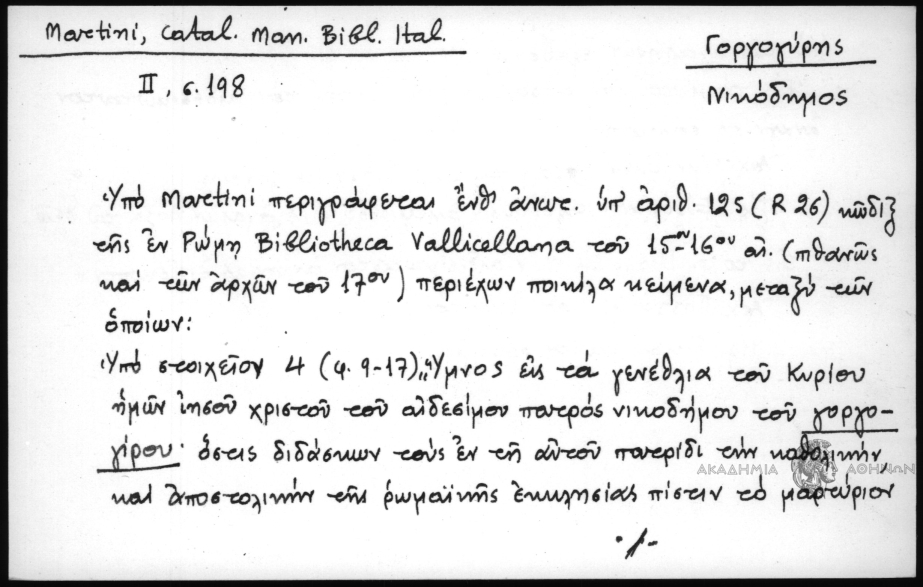 Martini, Catal. Man. Bibl. Ital.
II, σ. 198
Γοργογύρης
Νικόδημος
Ὑπό Martini περιγράφεται ἔνθ' ἀνωτ. ὑπ' ἀριθ. 125 (R 26) κῶδιξ
τῆς ἐν Ρώμῃ Bibliotheca Vallicellana τοῦ 15-16ου αἰ. (πιθανῶς
καί τῶν ἀρχῶν τοῦ 17ου) περιέχων ποικίλα κείμενα, μεταξύ τῶν
ὁποίων:
Ὑπό στοιχεῖον 4 (φ. 9-17) „Ὕμνος εἰς τά γενέθλια τοῦ Κυρίου
ἡμῶν ἰησοῦ χριστοῦ τοῦ αἰδεσίμου πατρός νικοδήμου τοῦ γοργο-
γίρου· ὅστις διδάσκων τούς ἐν τῇ αὐτοῦ πατρίδι τήν καθολικήν
καί ἀποστολικήν τῆς ῥωμαϊκῆς ἐκκλησίας πίστιν τό μαρτύριον
./-
ΑΚΑΔΗΜΙΑ ΑΘΗΝΩΝ